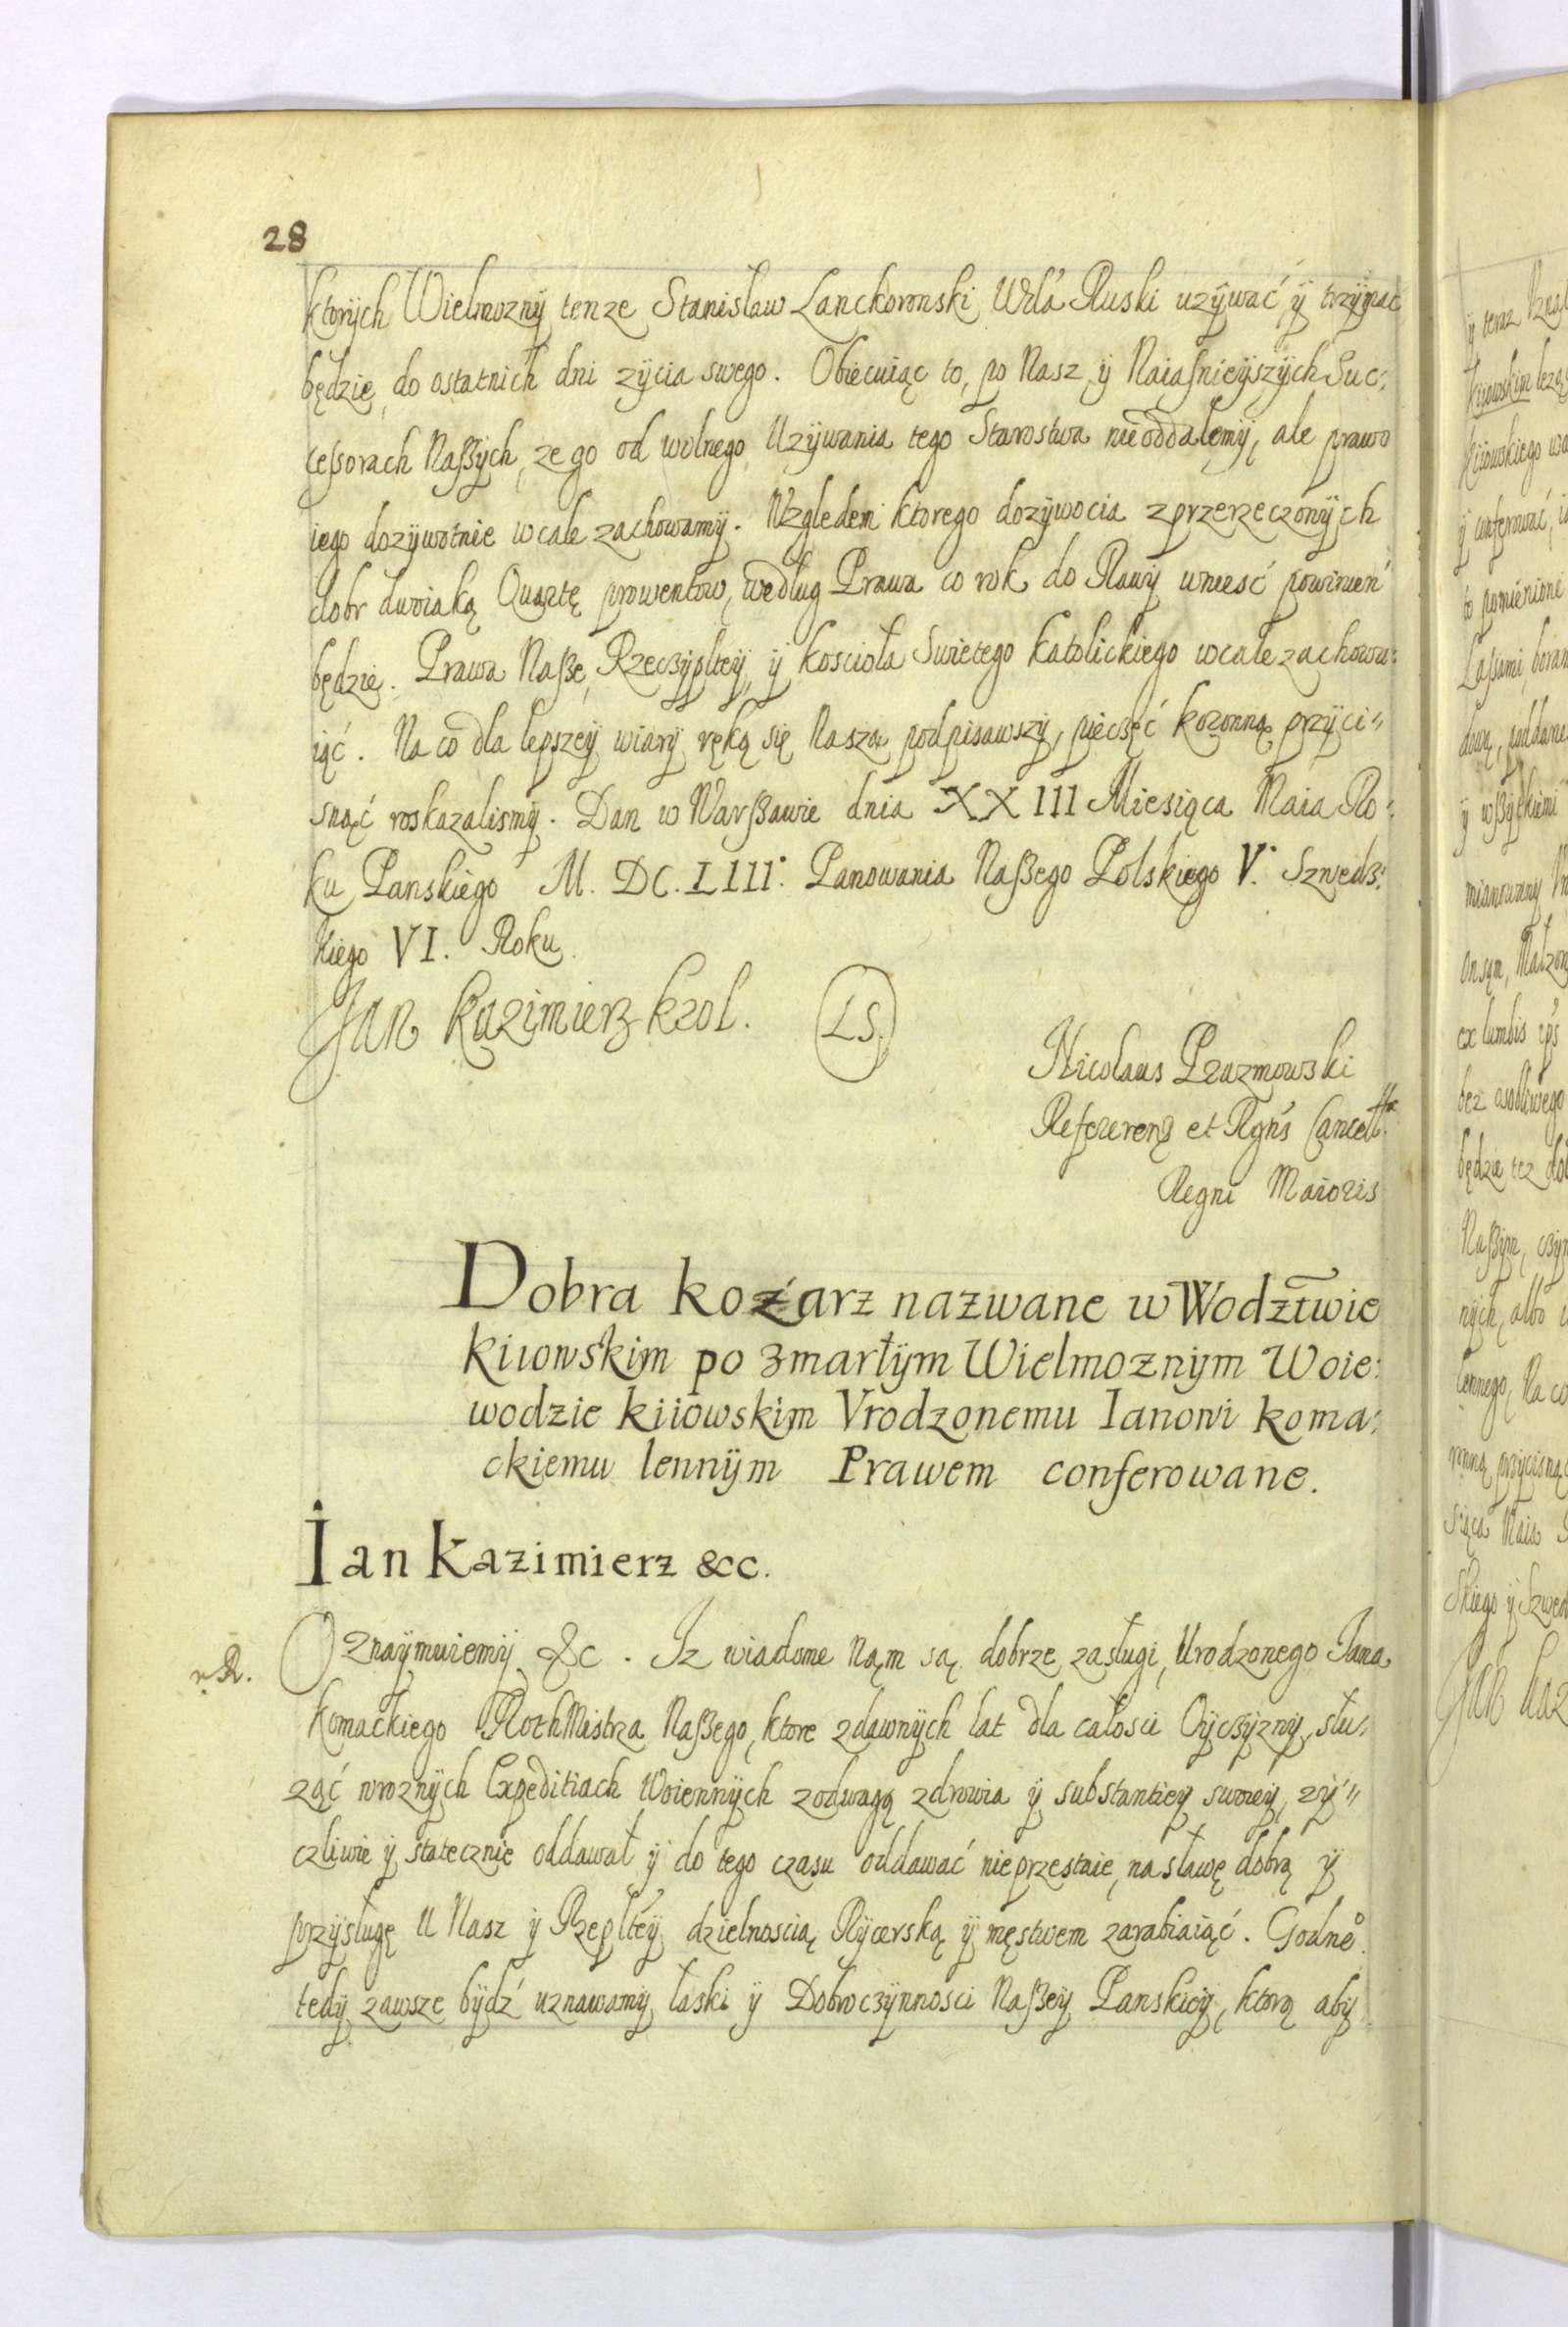 28
ktorÿch Wielmoznÿ tenze Stanisław Lanckoronski Wda Ruski uzÿwać ÿ trzÿmac
będzie, do ostatnich dni zÿcia swego. Obiecuiąc to, po Nasz ÿ Naiaśnieÿszÿch Suc:
cessorach Naszÿch, ze go od wolnego Uzÿwania tego Starostwa nieoddalemÿ, ale prawo
iego dozÿwotnie wcale zachowamÿ. Względem ktorego dozÿwocia zprzerzeczonÿch
dobr dwoiaką Quartę prowentow, według Prawa co rok do Rawÿ wnieść powinien
będzie. Prawa Nasze, Rzeczÿplteÿ, ÿ koscioła Swietego katolickiego wcale zachowu:
iąć. Na co dla lepszeÿ wiarÿ ręką się Naszą podpisawszÿ, pieczęć koronną przÿci"
snąć roskazalismÿ. Dan w Warszawie dnia XXIII Miesiąca Maia Ro:
ku Panskiego M. DC. LIII. Panowania Naszego Polskiego V. Szwedz:
kiego VI. Roku.
Jan Kazimierz krol. LS.
Nicolaus Prazmowski
Referend et Rgns Cancellae
Regni Maioris
Dobra kozarz nazwane w Wodztwie
kiiowskim po zmarłÿm Wielmoznÿm Woie:
wodzie kiiowskim Vrodzonemu Ianowi koma:
ckiemu lennÿm Prawem conferowane.
Ian Kazimierz &c.
r. R.
Oznaÿmuiemÿ &c. Iz wiadome Nąm są dobrze zasługi, Urodzonego Jana
Komackiego RothMistrza Naszego, ktore zdawnÿch lat dla całosci Oÿczÿznÿ, słu:
ząć wroznÿch Expeditiach Woiennÿch zodwagą zdrowia ÿ substantieÿ swoieÿ, zÿ"
czliwie ÿ statecznie oddawał ÿ do tego czasu oddawać nieprzestaie, na sławę dobrą ÿ
przÿsługę U Nasz ÿ Rzepltey dzielnoscią Rÿcerską ÿ męstwem zarabiaiąć. Godneo
tedÿ zawsze bÿdź uznawamÿ łaski ÿ Dobroczÿnnosci Naszeÿ Panskieÿ, ktorą abÿ
ÿ teraz
Kiiowskim
Kiiowskiego
ÿ conferować,
to pomienione
Lassami,
ÿ wszÿtkiemi
mianowanÿ
ex lumbis
bez osobliwego
będzie tez
Naszÿm,
nÿch, albo
lennego, Na co
przÿcisnąć
siąca Maia
skiego ÿ Szwed
Jan Kaz